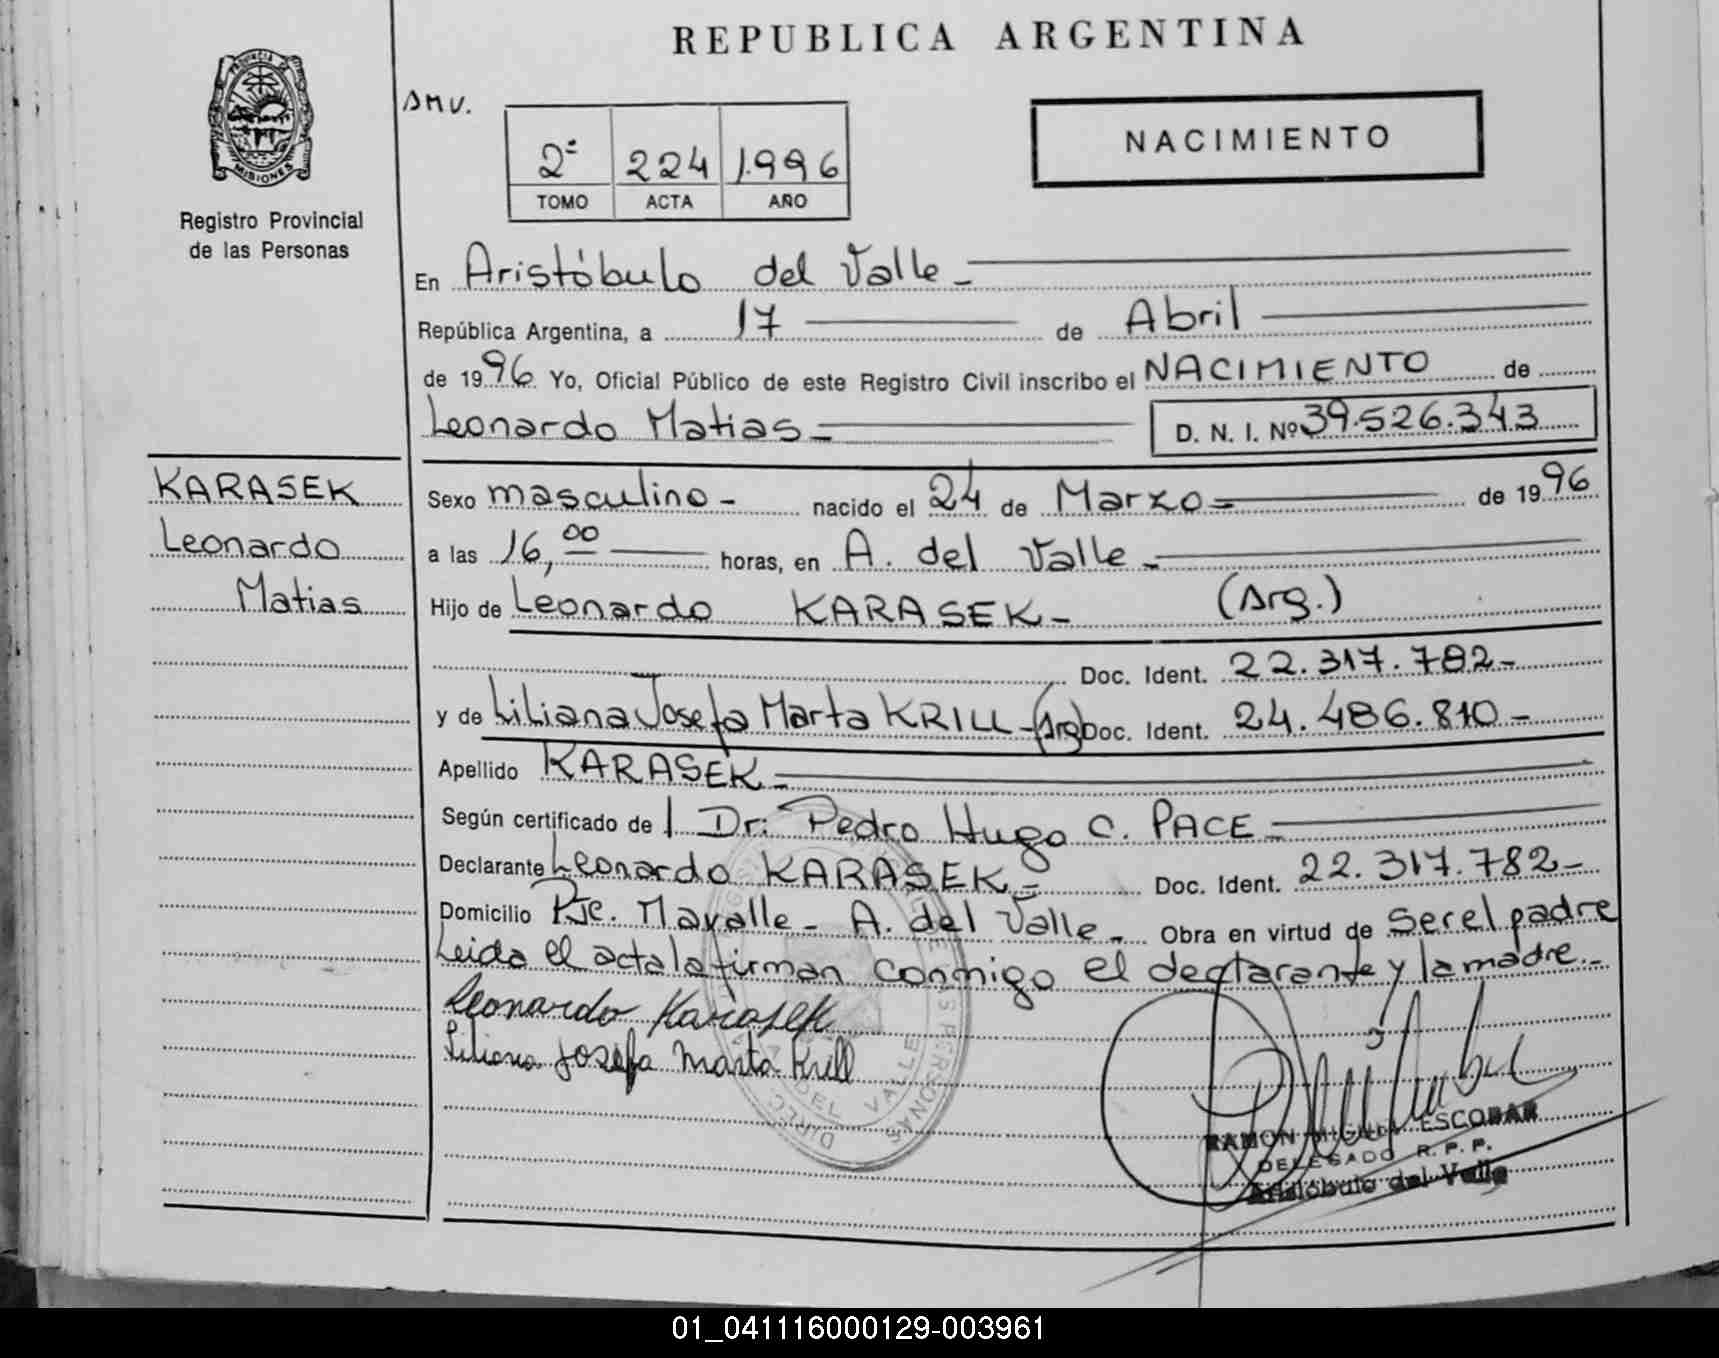 REPUBLICA ARGENTINA
PROVINCIA DE
MISIONES
Registro Provincial
de las Personas
DMV.
2º 224 1.996
TOMO ACTA AÑO
NACIMIENTO
En Aristóbulo del Valle-
República Argentina, a 17 de Abril
de 1996 Yo, Oficial Público de este Registro Civil inscribo el NACIMIENTO de
Leonardo Matias- D. N. I. Nº 39.526.343
KARASEK
Leonardo
Matias
Sexo masculino- nacido el 24 de Marzo= de 1996
a las 16,00 horas, en A. del Valle-
Hijo de Leonardo KARASEK- (Arg.)
Doc. Ident. 22.317.782-
y de Liliana Josefa Marta KRILL-(Arg) Doc. Ident. 24.486.810-
Apellido KARASEK-
Según certificado de l Dr: Pedro Hugo C. PACE-
Declarante Leonardo KARASEK.= Doc. Ident. 22.317.782-
Domicilio Pje. Mavalle- A. del Valle- Obra en virtud de ser el padre
Leida el acta la firman conmigo el declarante y la madre.-
Leonardo Karasek
Liliana Josefa Marta Krill
DEL VALLE
RAMON MIGUEL ESCOBAR
DELEGADO R.P.P.
Aristóbulo del Valle
01_041116000129-003961